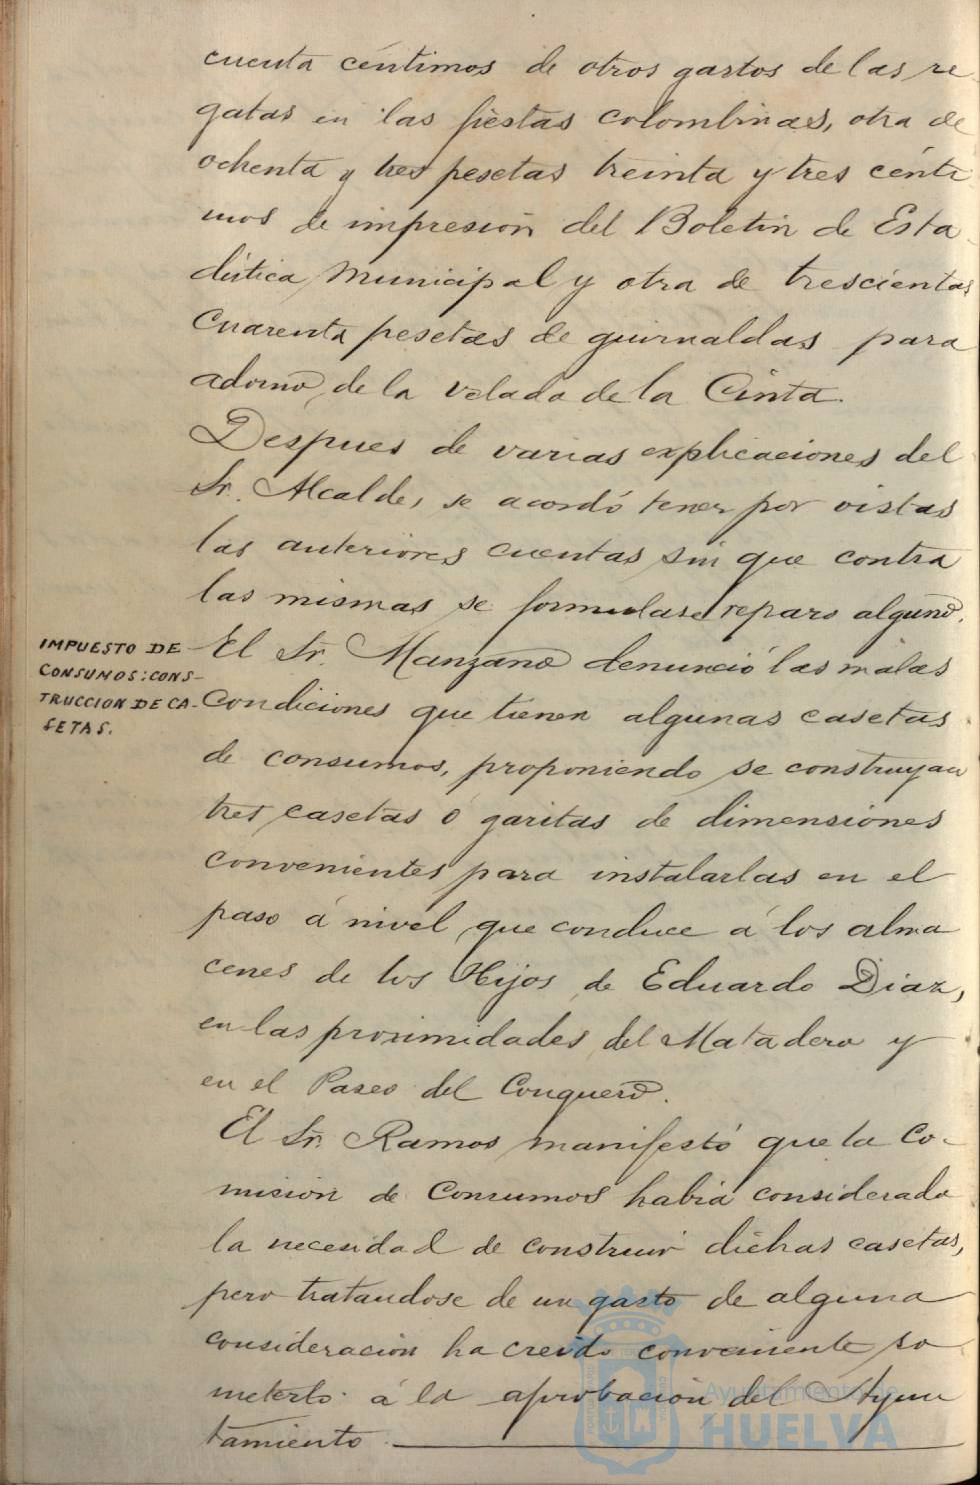 cuenta céntimos de otros gastos de las re
gatas en las fiestas colombinas, otra de
ochenta y tres pesetas treinta y tres cénti
mos de impresión del Boletin de Esta
dística Municipal y otra de trescientas
cuarenta pesetas de guirnaldas para
adorno de la velada de la Cinta.
Despues de varias explicaciones del
Sr. Alcalde, se acordó tener por vistas
las anteriores cuentas sin que contra
las mismas se formulase reparo alguno.
IMPUESTO DE
CONSUMOS: CONS-
TRUCCION DE CA-
SETAS.
El Sr. Manzano denunció las malas
condiciones que tienen algunas casetas
de consumos, proponiendo se construyan
tres casetas ó garitas de dimensiones
convenientes para instalarlas en el
paso á nivel que conduce á los alma
cenes de los Hijos de Eduardo Diaz,
en las proximidades del Matadero y
en el Paseo del Conquero.
El Sr. Ramos manifestó que la Co-
misión de Consumos habia considerado
la necesidad de construir dichas casetas,
pero tratandose de un gasto de alguna
consideración ha creido conveniente so
meterlo á la aprobación del Ayun
tamiento.
Ayuntamiento de
HUELVA